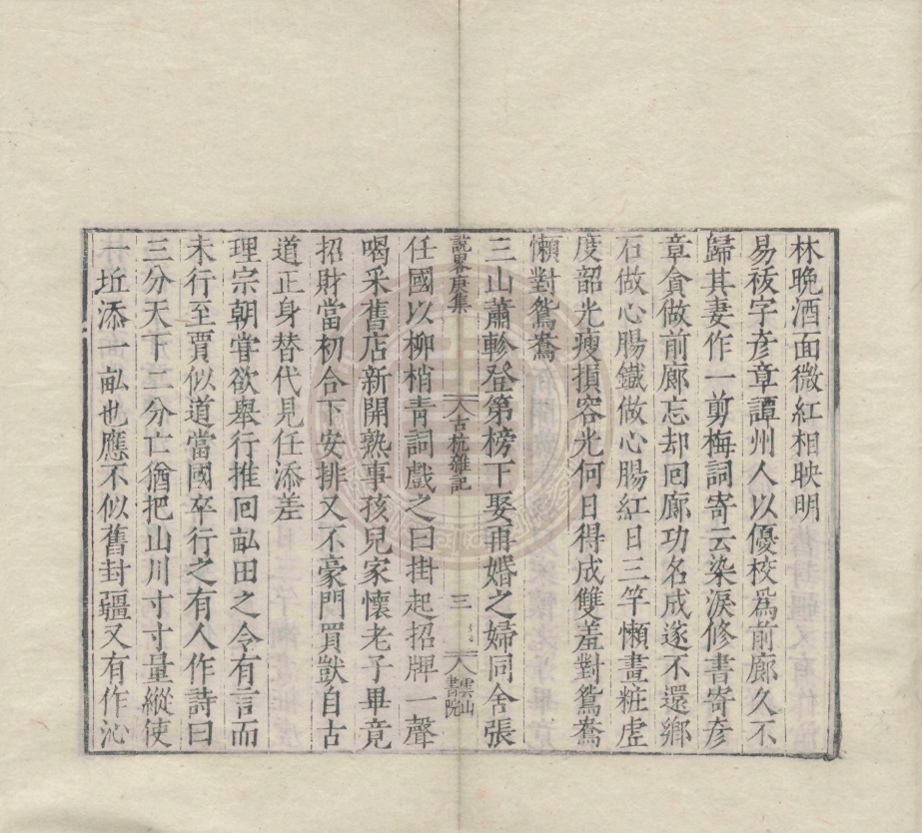 林晚酒面微紅相映明
易祓字彦章譚州人以優校爲前廊久不
歸其妻作一剪梅詞寄云染淚修書寄彦
章貪做前廊忘却回廊功名成遂不還鄉
石做心腸鐵做心腸紅日三竿懶畫粧虛
度韶光瘦損容光何日得成雙羞對鴛鴦
懶對鴛鴦
三山蕭軫登第榜下娶再婚之婦同舍張
說畧庚集 古杭雜記 三 雲山書院
任國以柳梢青詞戲之曰掛起招牌一聲
喝采舊店新開熟事孩兒家懷老子畢竟
招財當初合下安排又不豪門買獃自古
道正身替代見任添差
理宗朝甞欲舉行推回畝田之令有言而
未行至賈似道當國卒行之有人作詩曰
三分天下二分亡猶把山川寸寸量縱使
一坵添一畝也應不似舊封疆又有作沁